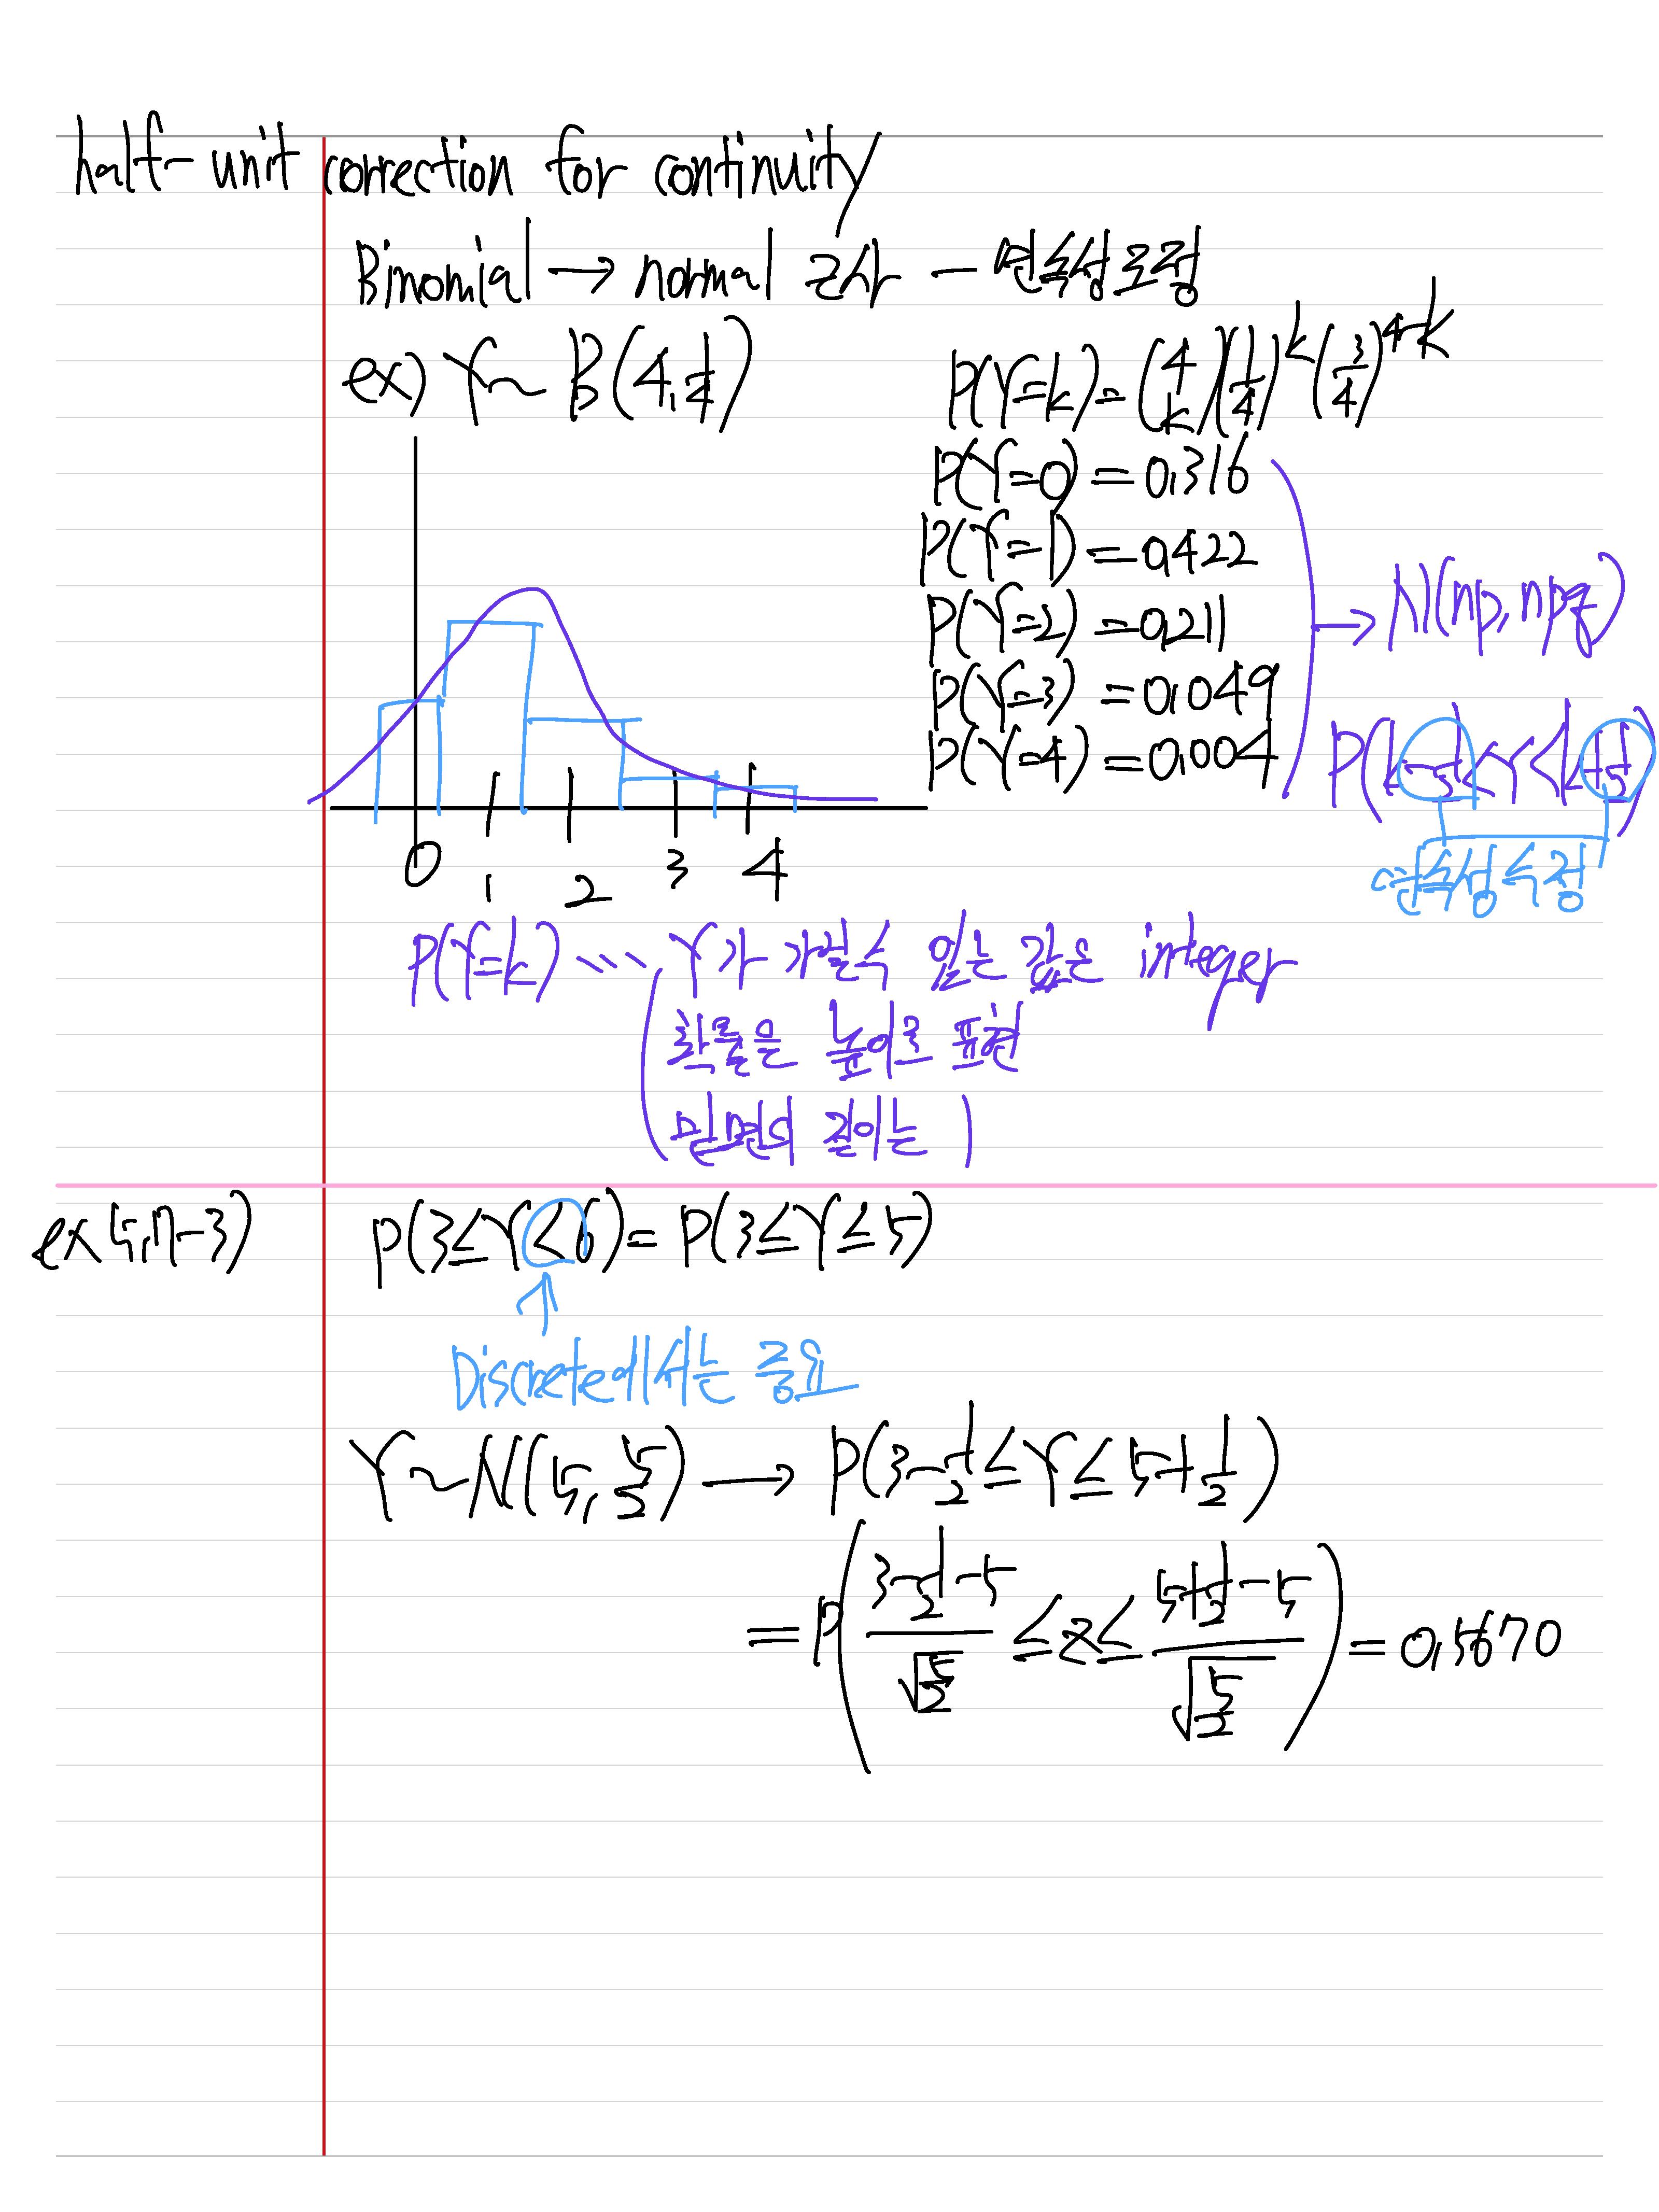 half-unit correction for continuity
Binomial → normal 근사 - 연속성 보정
ex) Y ~ B(4, 1/4)
P(Y=k) = (4 k)(1/4)^k (3/4)^4-k
P(Y=0) = 0.316
P(Y=1) = 0.422
P(Y=2) = 0.211
P(Y=3) = 0.049
P(Y=4) = 0.004
→ N(np, npq)
P(k-1/2 < Y < k+1/2)
연속성 수정
0 1 2 3 4
P(Y=k) ···· Y가 가질수 있는 값은 integer
확률은 높이로 표현
밑면의 길이는 1
ex 5.7-3) P(3≤Y<6) = P(3≤Y≤5)
↑
Discrete에서는 중요
Y ~ N(5, 5/2) → P(3-1/2 ≤ Y ≤ 5+1/2)
= P((3-1/2-5)/√(5/2) ≤ z ≤ (5+1/2-5)/√(5/2)) = 0.5670